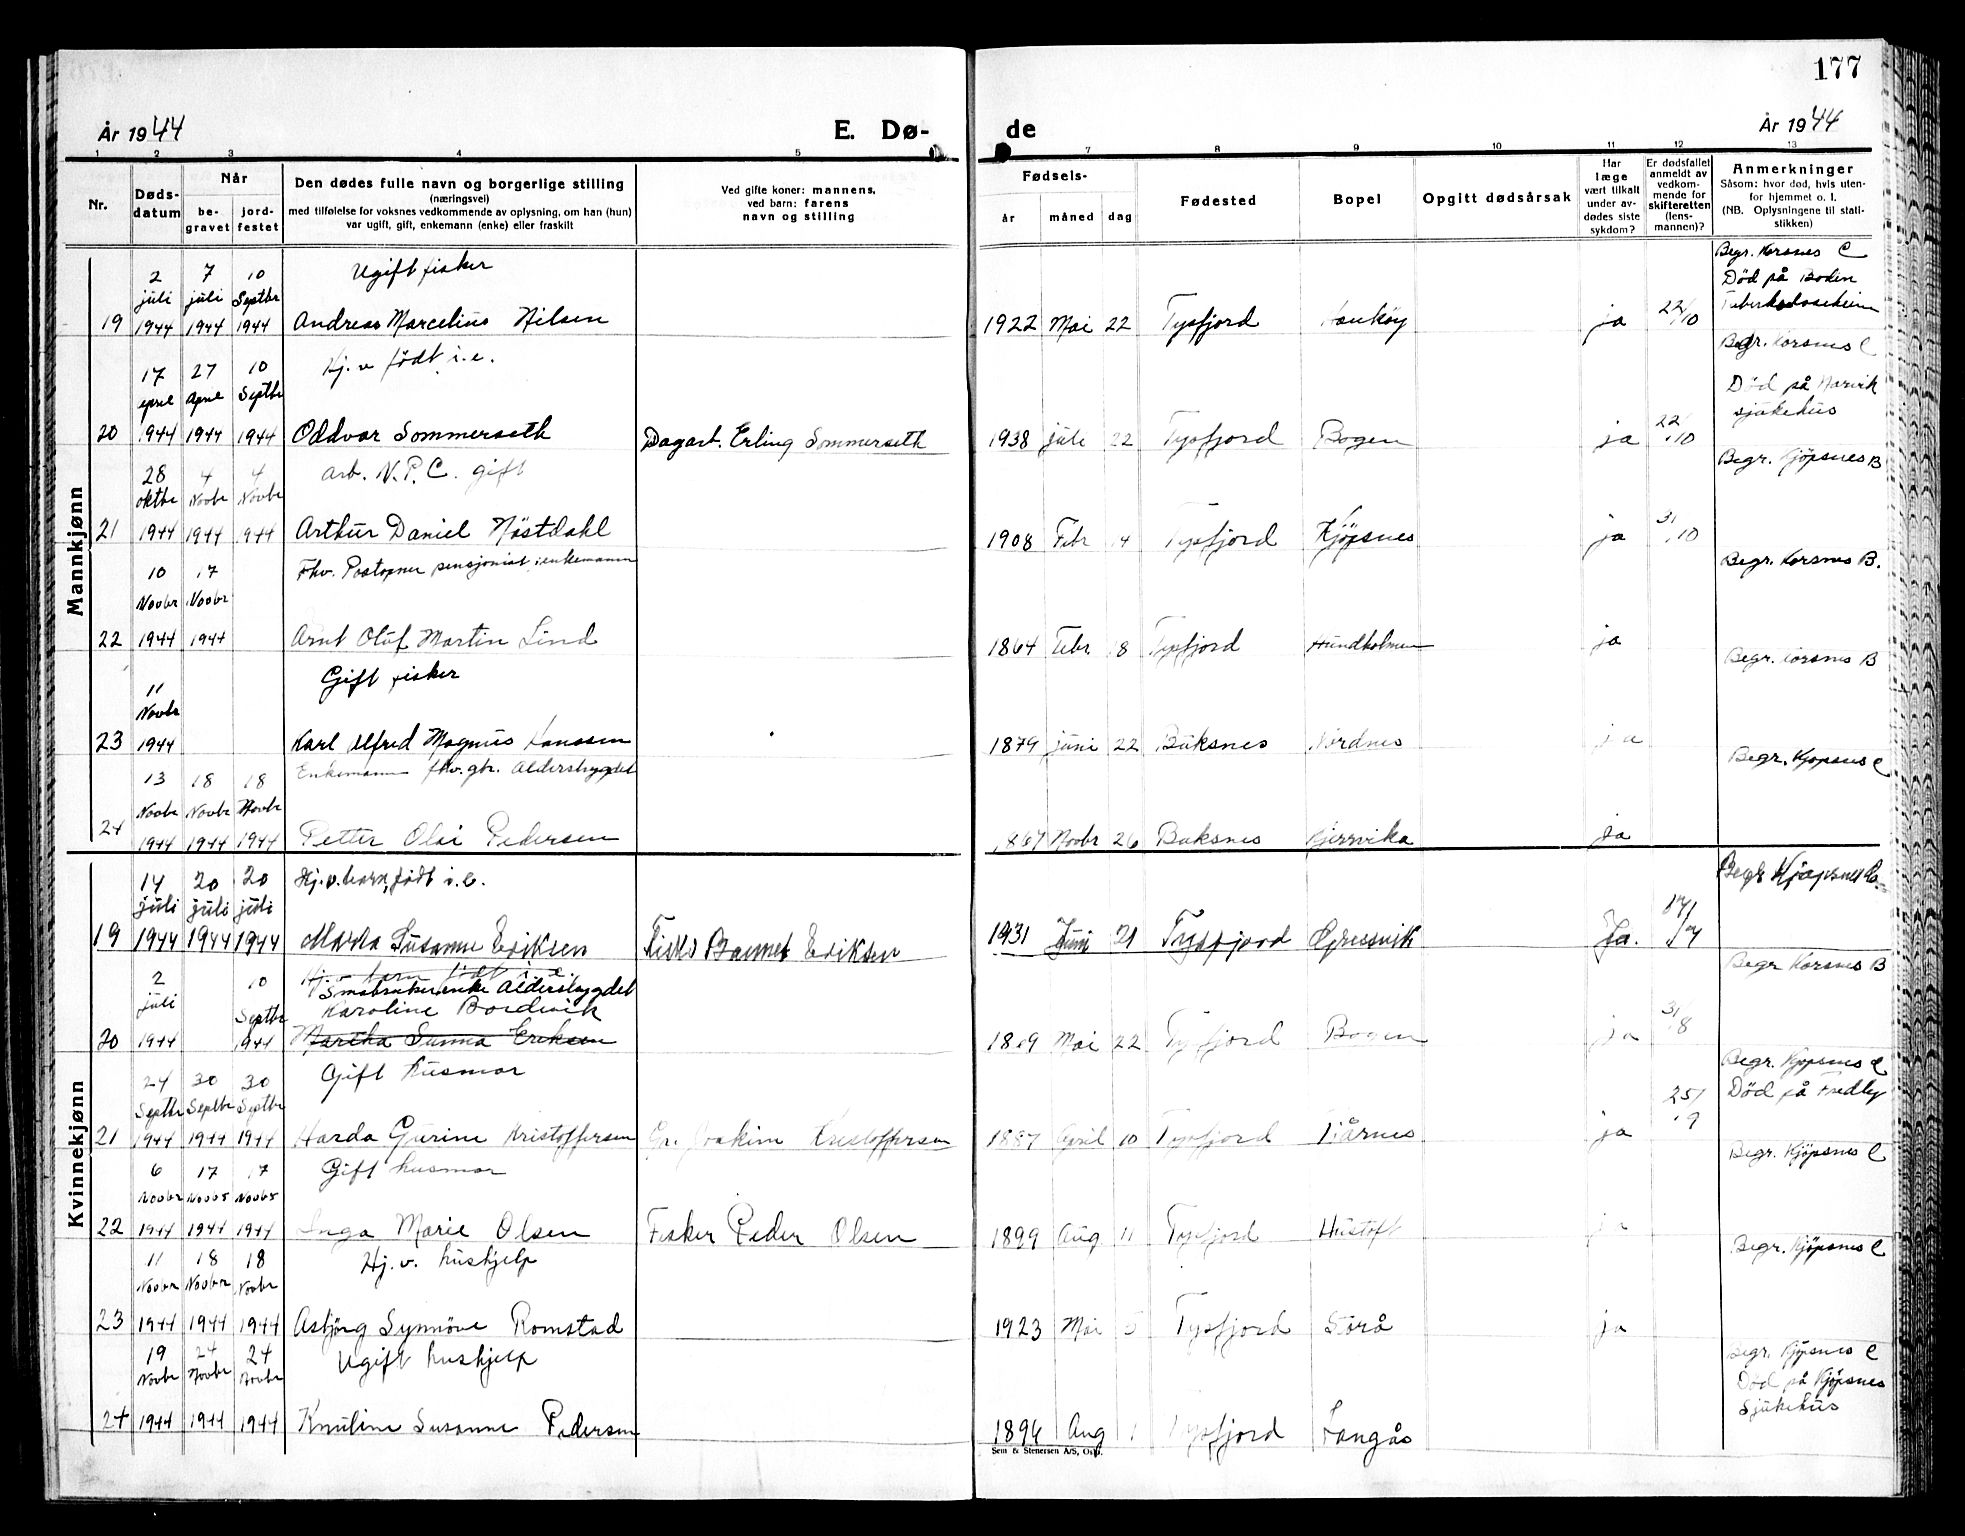 177
År 1944
E. Dø-
de
År 1944
1 2 3 4 5 7 8 9 10 11 12 13
Nr.
Døds-
datum
Når
be-
gravet
jord-
festet
Den dødes fulle navn og borgerlige stilling
(næringsvei)
med tilføielse for voksnes vedkommende av oplysning, om han (hun)
var ugift, gift, enkemann (enke) eller fraskilt
Ved gifte koner: mannens,
ved barn: farens
navn og stilling
Fødsels-
år måned dag
Fødested
Bopel
Opgitt dødsårsak
Har
læge
vært tilkalt
under av-
dødes siste
sykdom?
Er dødsfallet
anmeldt av
vedkom-
mende for
skifteretten
(lens-
mannen)?
Anmerkninger
Såsom: hvor død, hvis uten-
for hjemmet o. l.
(NB. Oplysningene til stati-
stikken)
Mannkjønn
2 7 10 Ugift fisker Begr. Korsnes C
juli juli Septbr Død på Bodin
19 1944 1944 1944 Andreas Marcelius Nilsen 1922 Mai 22 Tysfjord Haukøy ja 22/10
17 27 10 Hj. v født i. e. Begr. Korsnes C
april April Septbr Død på Narvik
sjukehus
20 1944 1944 1944 Oddvar Sommerseth Dagarb. Erling Sommerseth 1938 juli 22 Tysfjord Bogen ja 22/10
28 4 4 arb. N.P.C. gift Begr. Kjöpsnes B
oktbr Novbr Novbr
21 1944 1944 1944 Arthur Daniel Nöstdahl 1908 Febr 14 Tysfjord Kjöpsnes ja 31/10
10 17 Fhv. Postopner pensjonist enkemann Begr. Korsnes B.
Novbr Novbr
22 1944 1944 Arnt Oluf Martin Lind 1864 Febr 18 Tysfjord Hundholmen ja
Gift fisker Begr. Korsnes B
11
Novbr
23 1944 Karl Alfred Magnus Hanssen 1879 juni 22 Buksnes Nordnes ja
13 18 18 Enkemann fhv. gbr. Alderstrygdet Begr. Kjöpsnes C
Novbr Novbr Novbr
24 1944 1944 1944 Petter Olai Pedersen 1867 Novbr 26 Buksnes Kjerrvika ja
Kvinnekjønn
14 20 20 Hj. v. barn, født i. e. Begr Kjöpsnes
juli juli juli
19 1944 1944 1944 Marta Susanne Eriksen Eriksen 1931 Juni 21 Tysfjord Grunvik Ja.
2 10 Hj. v barn født i. e. Begr Korsnes B
Småbrukerenke Alderstrygdet
juli Septbr Karoline Bordevik
20 1944 1944 Martha Sunna Eriksen Mai 22 Tysfjord Bogen ja 31/8
24 30 30 Gift Husmor Begr. Kjöpsnes C
Septbr Septbr Septbr Død på Fredly
21 1944 1944 1944 Harda Gurine Kristoffersen Gr. Joakim Kristoffersen 1887 April 10 Tysfjord ja 25/9
6 17 17 Gift husmor Begr. Kjöpsnes C
Novbr Novbr Novbr
22 1944 1944 1944 Inga Marie Olsen Fisker Peder Olsen 1899 Aug 11 Tysfjord Hustoft ja
11 18 18 Hj. v. hushjelp Begr. Kjöpsnes C
Novbr Novbr Novbr
23 1944 1944 1944 Asbjörg Synnöve Romstad 1923 Mai 5 Tysfjord Sörå ja
19 24 24 Ugift hushjelp Begr. Kjöpsnes C
Novbr Novbr Novbr Død på Kjöpsnes
Sjukehus
24 1944 1944 1944 Knutine Susanne Pedersen 1894 Aug 1 Tysfjord Langås
Sem & Stenersen A/S, Oslo.